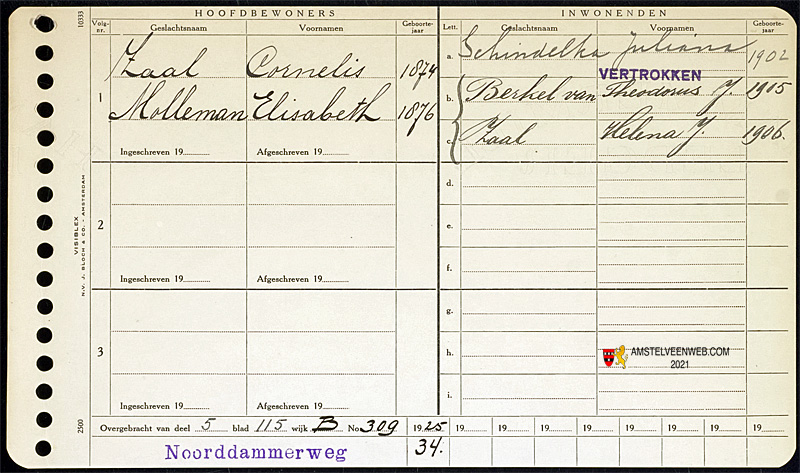 HOOFDBEWONERS
INWONENDEN
Volg-nr. Geslachtsnaam Voornamen Geboorte-jaar
Lett. Geslachtsnaam Voornamen Geboorte-jaar
1
Zaal Cornelis 1874
Molleman Elisabeth 1876
Ingeschreven 19 Afgeschreven 19
2
Ingeschreven 19 Afgeschreven 19
3
Ingeschreven 19 Afgeschreven 19
a. Schindelka Juliana 1902
VERTROKKEN
b. Berkel van Theodorus J. 1905
c. Zaal Helena J. 1906.
d.
e.
f.
g.
h.
i.
AMSTELVEENWEB.COM
2021
Overgebracht van deel 5 blad 115 wijk B No 309 1925 19 19 19 19 19 19 19 19
Noorddammerweg 34.
10333
VISIBLEX
N.V. J. BLOCH & CO. - AMSTERDAM
2500